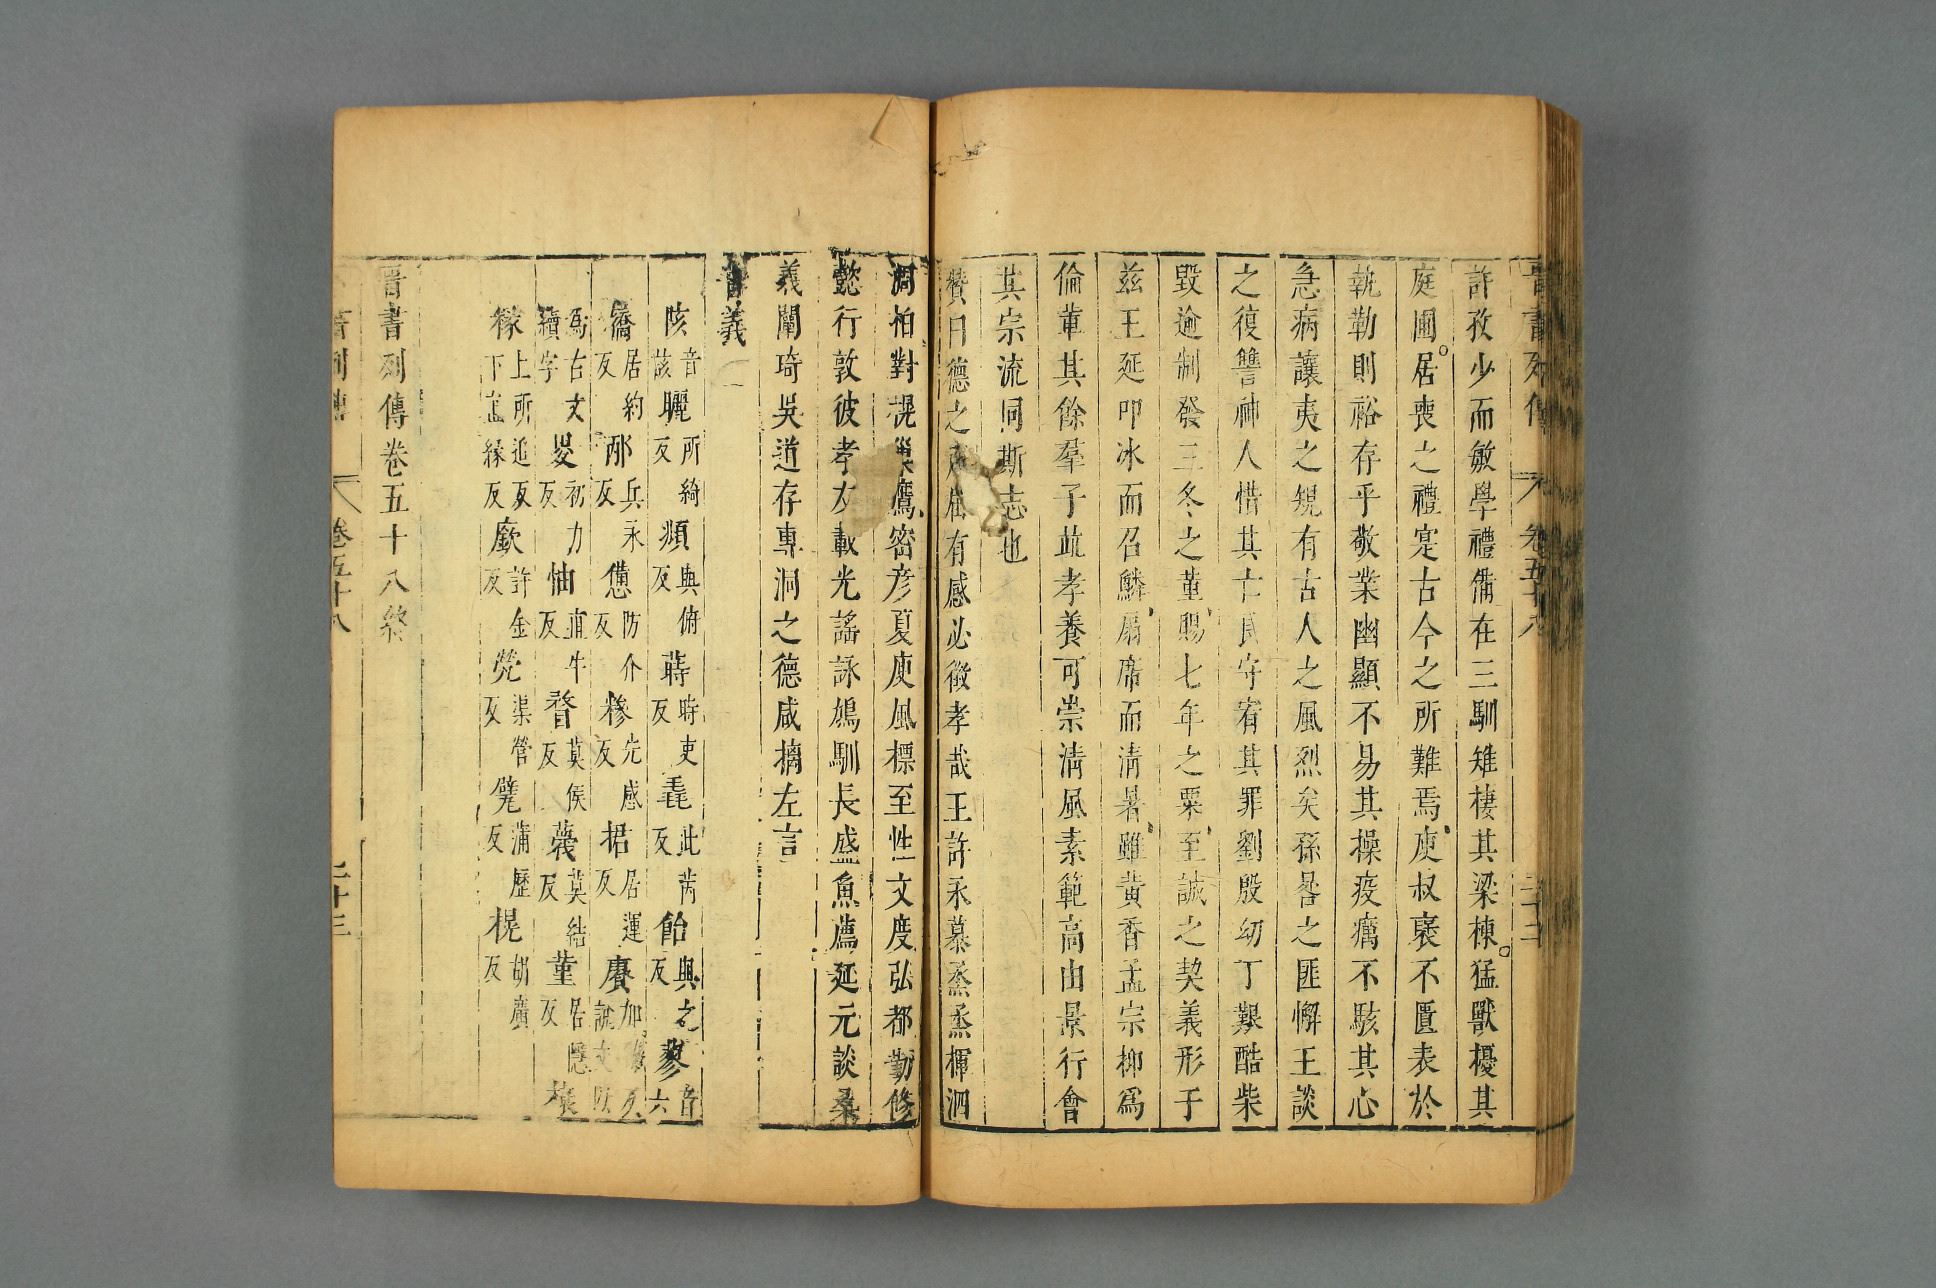 許孜少而敏學禮備在三馴雉棲其梁棟猛獸擾其
庭圃居喪之禮寔古今之所難焉庾叔褒不匱表於
執勒則裕存乎敬業幽顯不易其操疫癘不駭其心
急病讓夷之規有古人之風烈矣孫晷之匪懈王談
之復讐神人惜其亡良守宥其罪劉殷幼丁艱酷柴
毀逾制發三冬之菫賜七年之粟至誠之契義形于
茲王延叩冰而召鱗扇席而清暑雖黃香孟宗抑爲
倫輩其餘羣子竝孝養可崇清風素範高山景行會
其宗流同斯志也
贊曰德之所屆有感必徵孝哉王許永慕烝烝揮泗
凋柏對榥巢鷹密彥夏庾風標至性文度弘都勤修
懿行敦彼孝友載光謠詠鳩馴長盛魚薦延元談桑
義闡琦吳道存專洞之德咸摛左言
音義
陔音該 曬所綺反 頫與俯反 蒔時吏反 毳此芮反 飴與之反 蓼音六
矯居約反 邴兵永反 憊防介反 糝先感反 捃居運反 賡加
爲古文續字 旻初力反 㤕直牛反 瞀莫侯反 蔑莫結反 菫居隱反
椽上所追反下直緣反 廞許金反 煢渠營反 甓蒲歷反 榥胡廣反
晉書列傳卷五十八終
晉書列傳 卷五十八 二十二
晉列傳 卷五十八 二十三